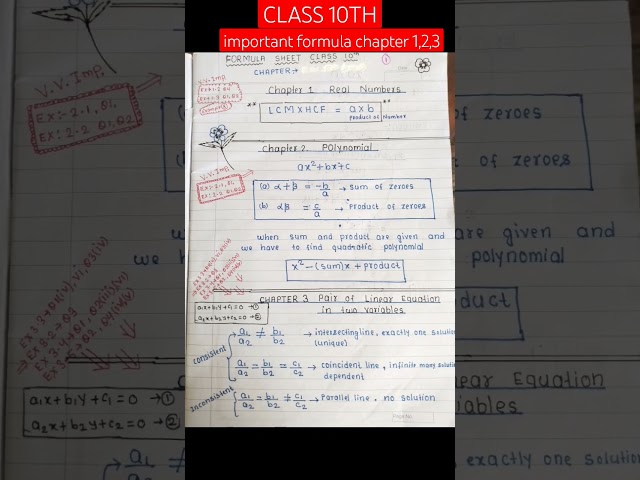 CLASS 10TH
important formula chapter 1,2,3
FORMULA SHEET CLASS 10th
①
CHAPTER:-
V.V.Imp.
Chapter 1 Real Numbers
** LCM X HCF = axb **
Product of Number
Chapter 2 Polynomial
ax²+bx+c
V.V.Imp.
EX:- 2.1, Q1.
EX:- 2.2 Q1,Q2
(a) α+β = -b/a → sum of zeroes
(b) αβ = c/a → Product of zeroes
when sum and product are given and
we have to find quadratic polynomial
x²-(sum)x + product
CHAPTER 3 Pair of Linear Equation
in two variables
a₁x+b₁y+c₁=0 →①
a₂x+b₂y+c₂=0 →②
consistent
a₁/a₂ ≠ b₁/b₂ → intersecting line, exactly one solution
(unique)
a₁/a₂ = b₁/b₂ = c₁/c₂ → coincident line, infinite many solution
dependent
Inconsistent
a₁/a₂ = b₁/b₂ ≠ c₁/c₂ → Parallel line, no solution
V.V.Imp.
EX:- 2.1, Q1.
EX:- 2.2 Q1,Q2
of zeroes
of zeroes
are given and
polynomial
duct
near Equation
iables
a₁x+b₁y+c₁=0 →①
a₂x+b₂y+c₂=0 →②
a₁ ≠
exactly one solution